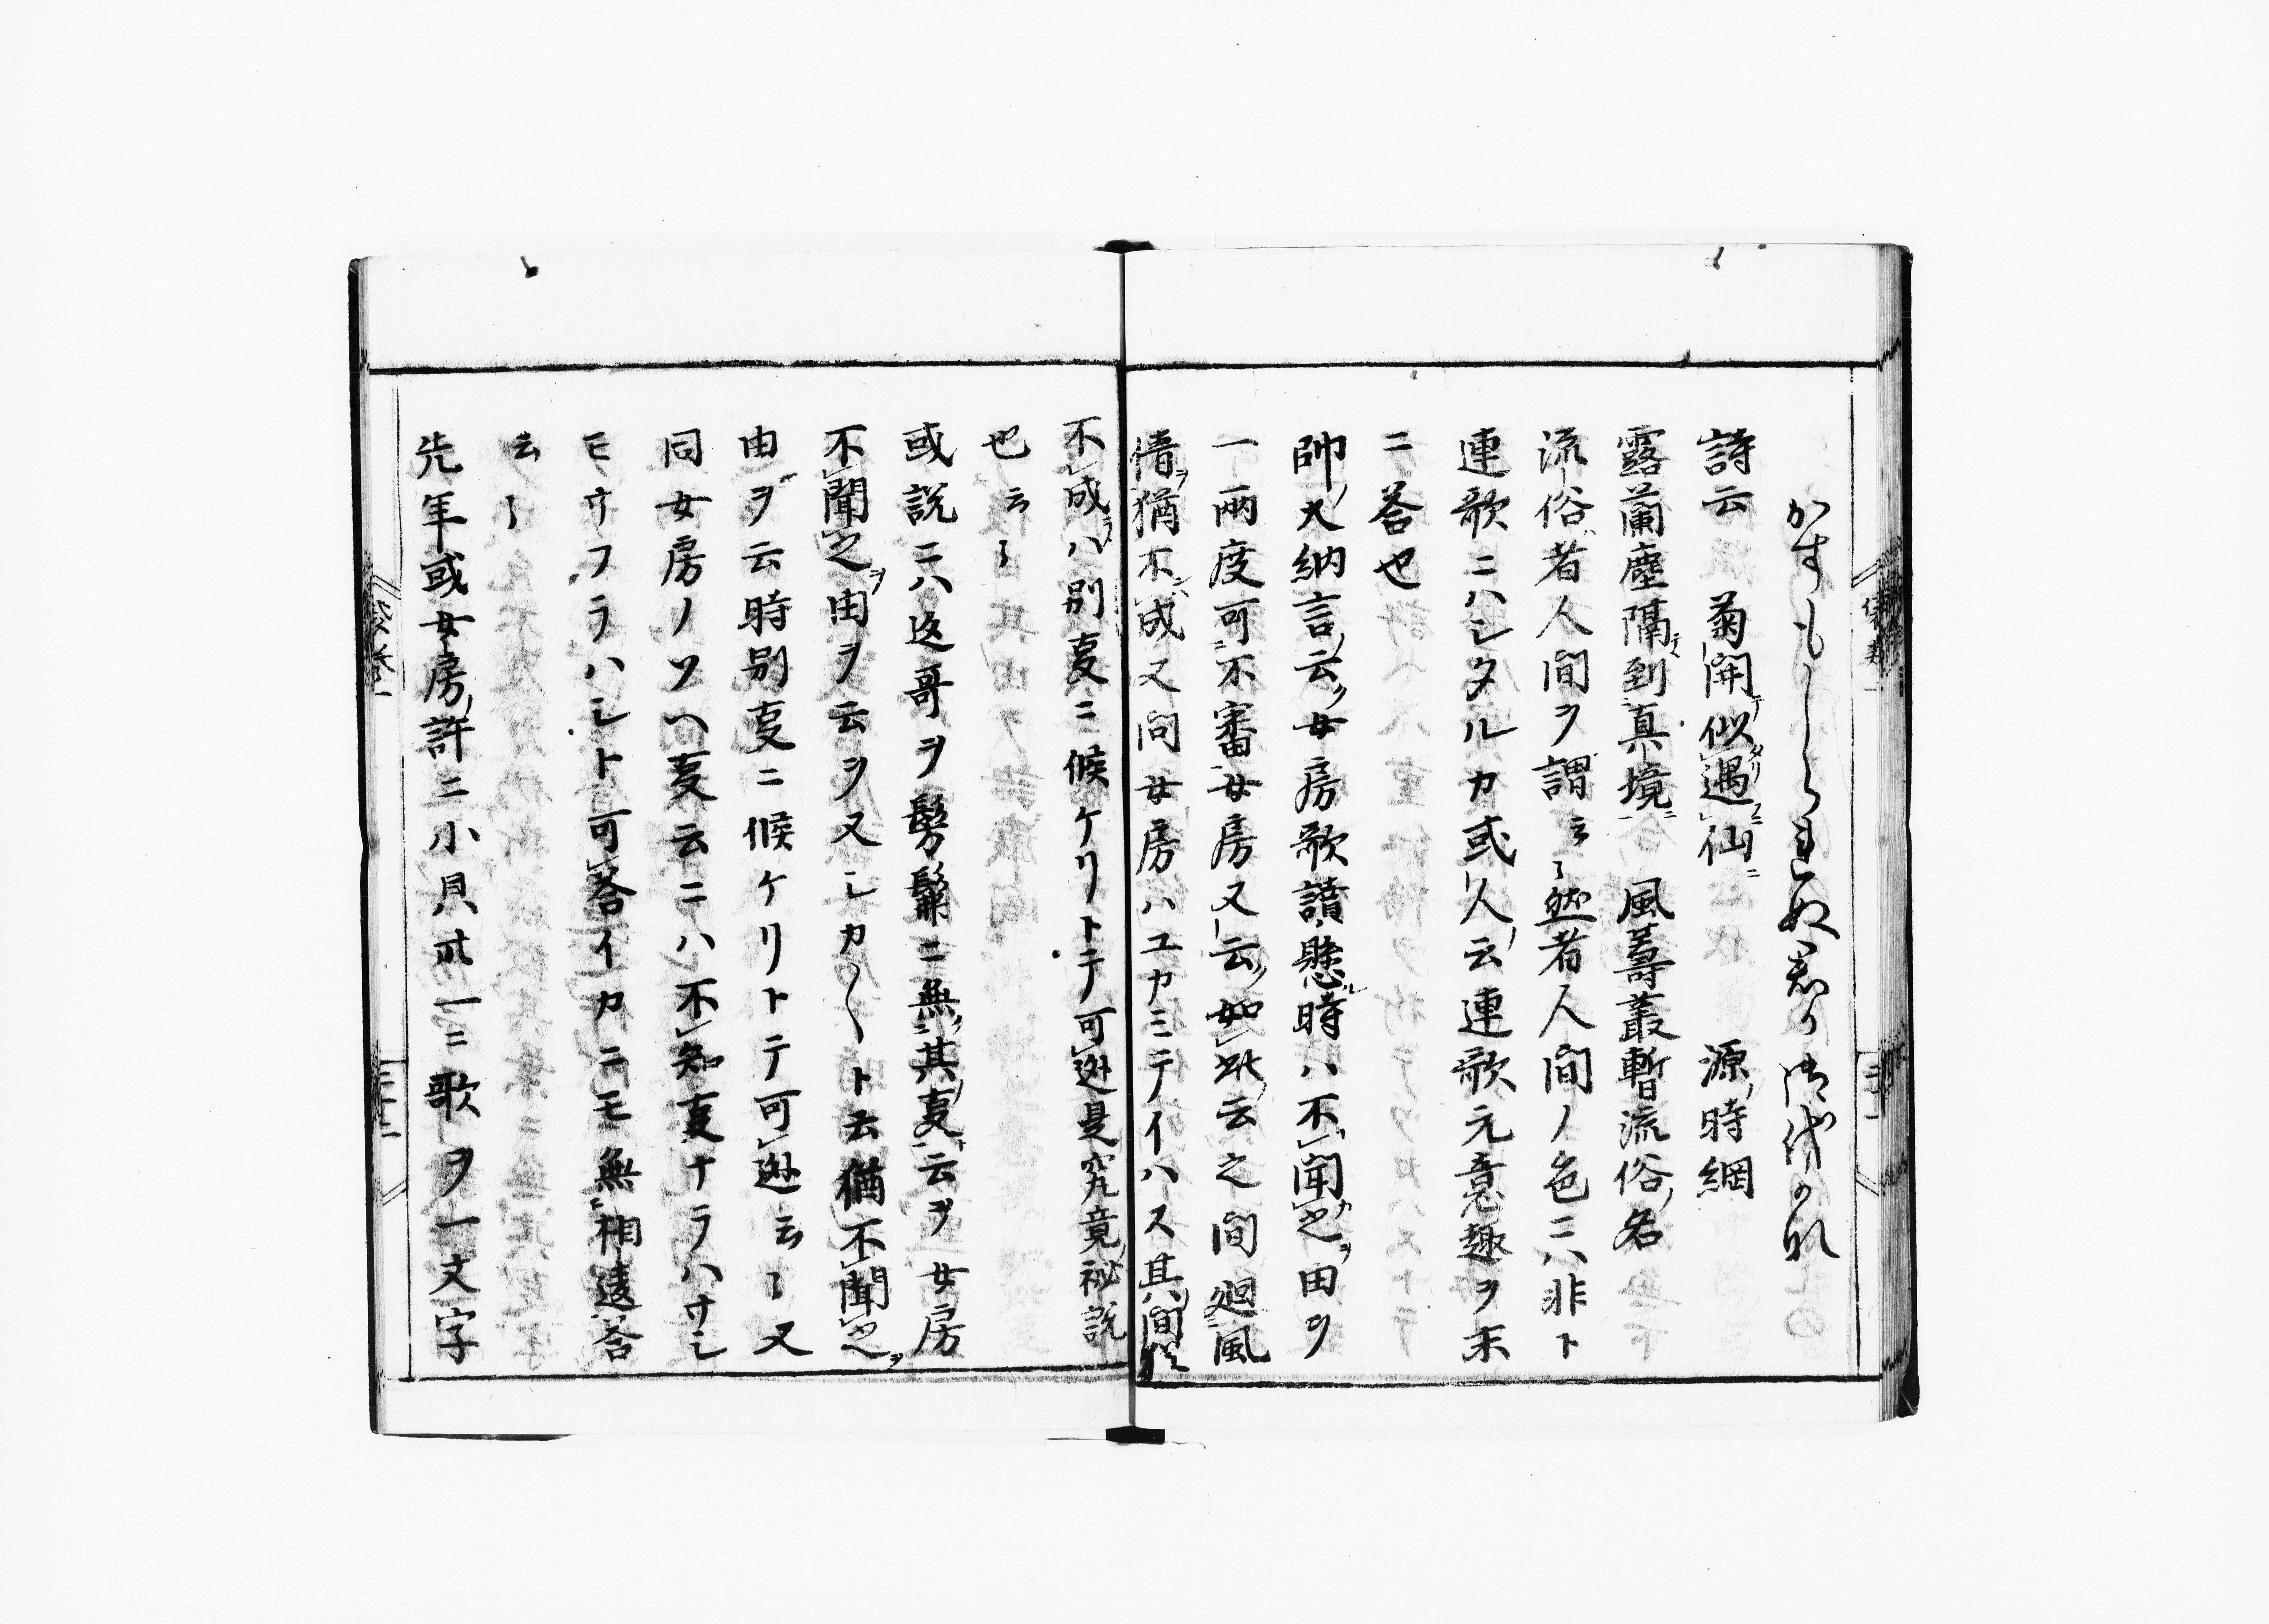 かすもしられぬ君か御代かな
詩云　菊開似遇仙　源時綱
露蘭塵隔到真境　風蓴叢暫流俗名
流俗者人間ヲ謂云々然者人間ノ色ニハ非ト
連歌ニハシタルカ或人云連歌元意趣ヲ末
ニ答也
帥大納言云女房歌讀懸時ハ不聞之由ヲ
一両度可不審女房又云如此云之間廻風
情猶不成又向女房ハユカミテイハス其間
不成ハ別叓ニ候ケリトテ可逃是究竟秘説
也云々
或説ニハ返哥ヲ髣髴ニ無其叓云ヲ女房
不聞之由ヲ云ヲ又シカ〱ト云猶不聞之
由ヲ云時別叓ニ候ケリトテ可逃云々又
同女房ノソヘ叓云ニハ不知叓ナラハサシ
モサフラハシト可答イカニモ無相違答
云々
先年或女房許ニ小貝卅一ニ歌ヲ一文字